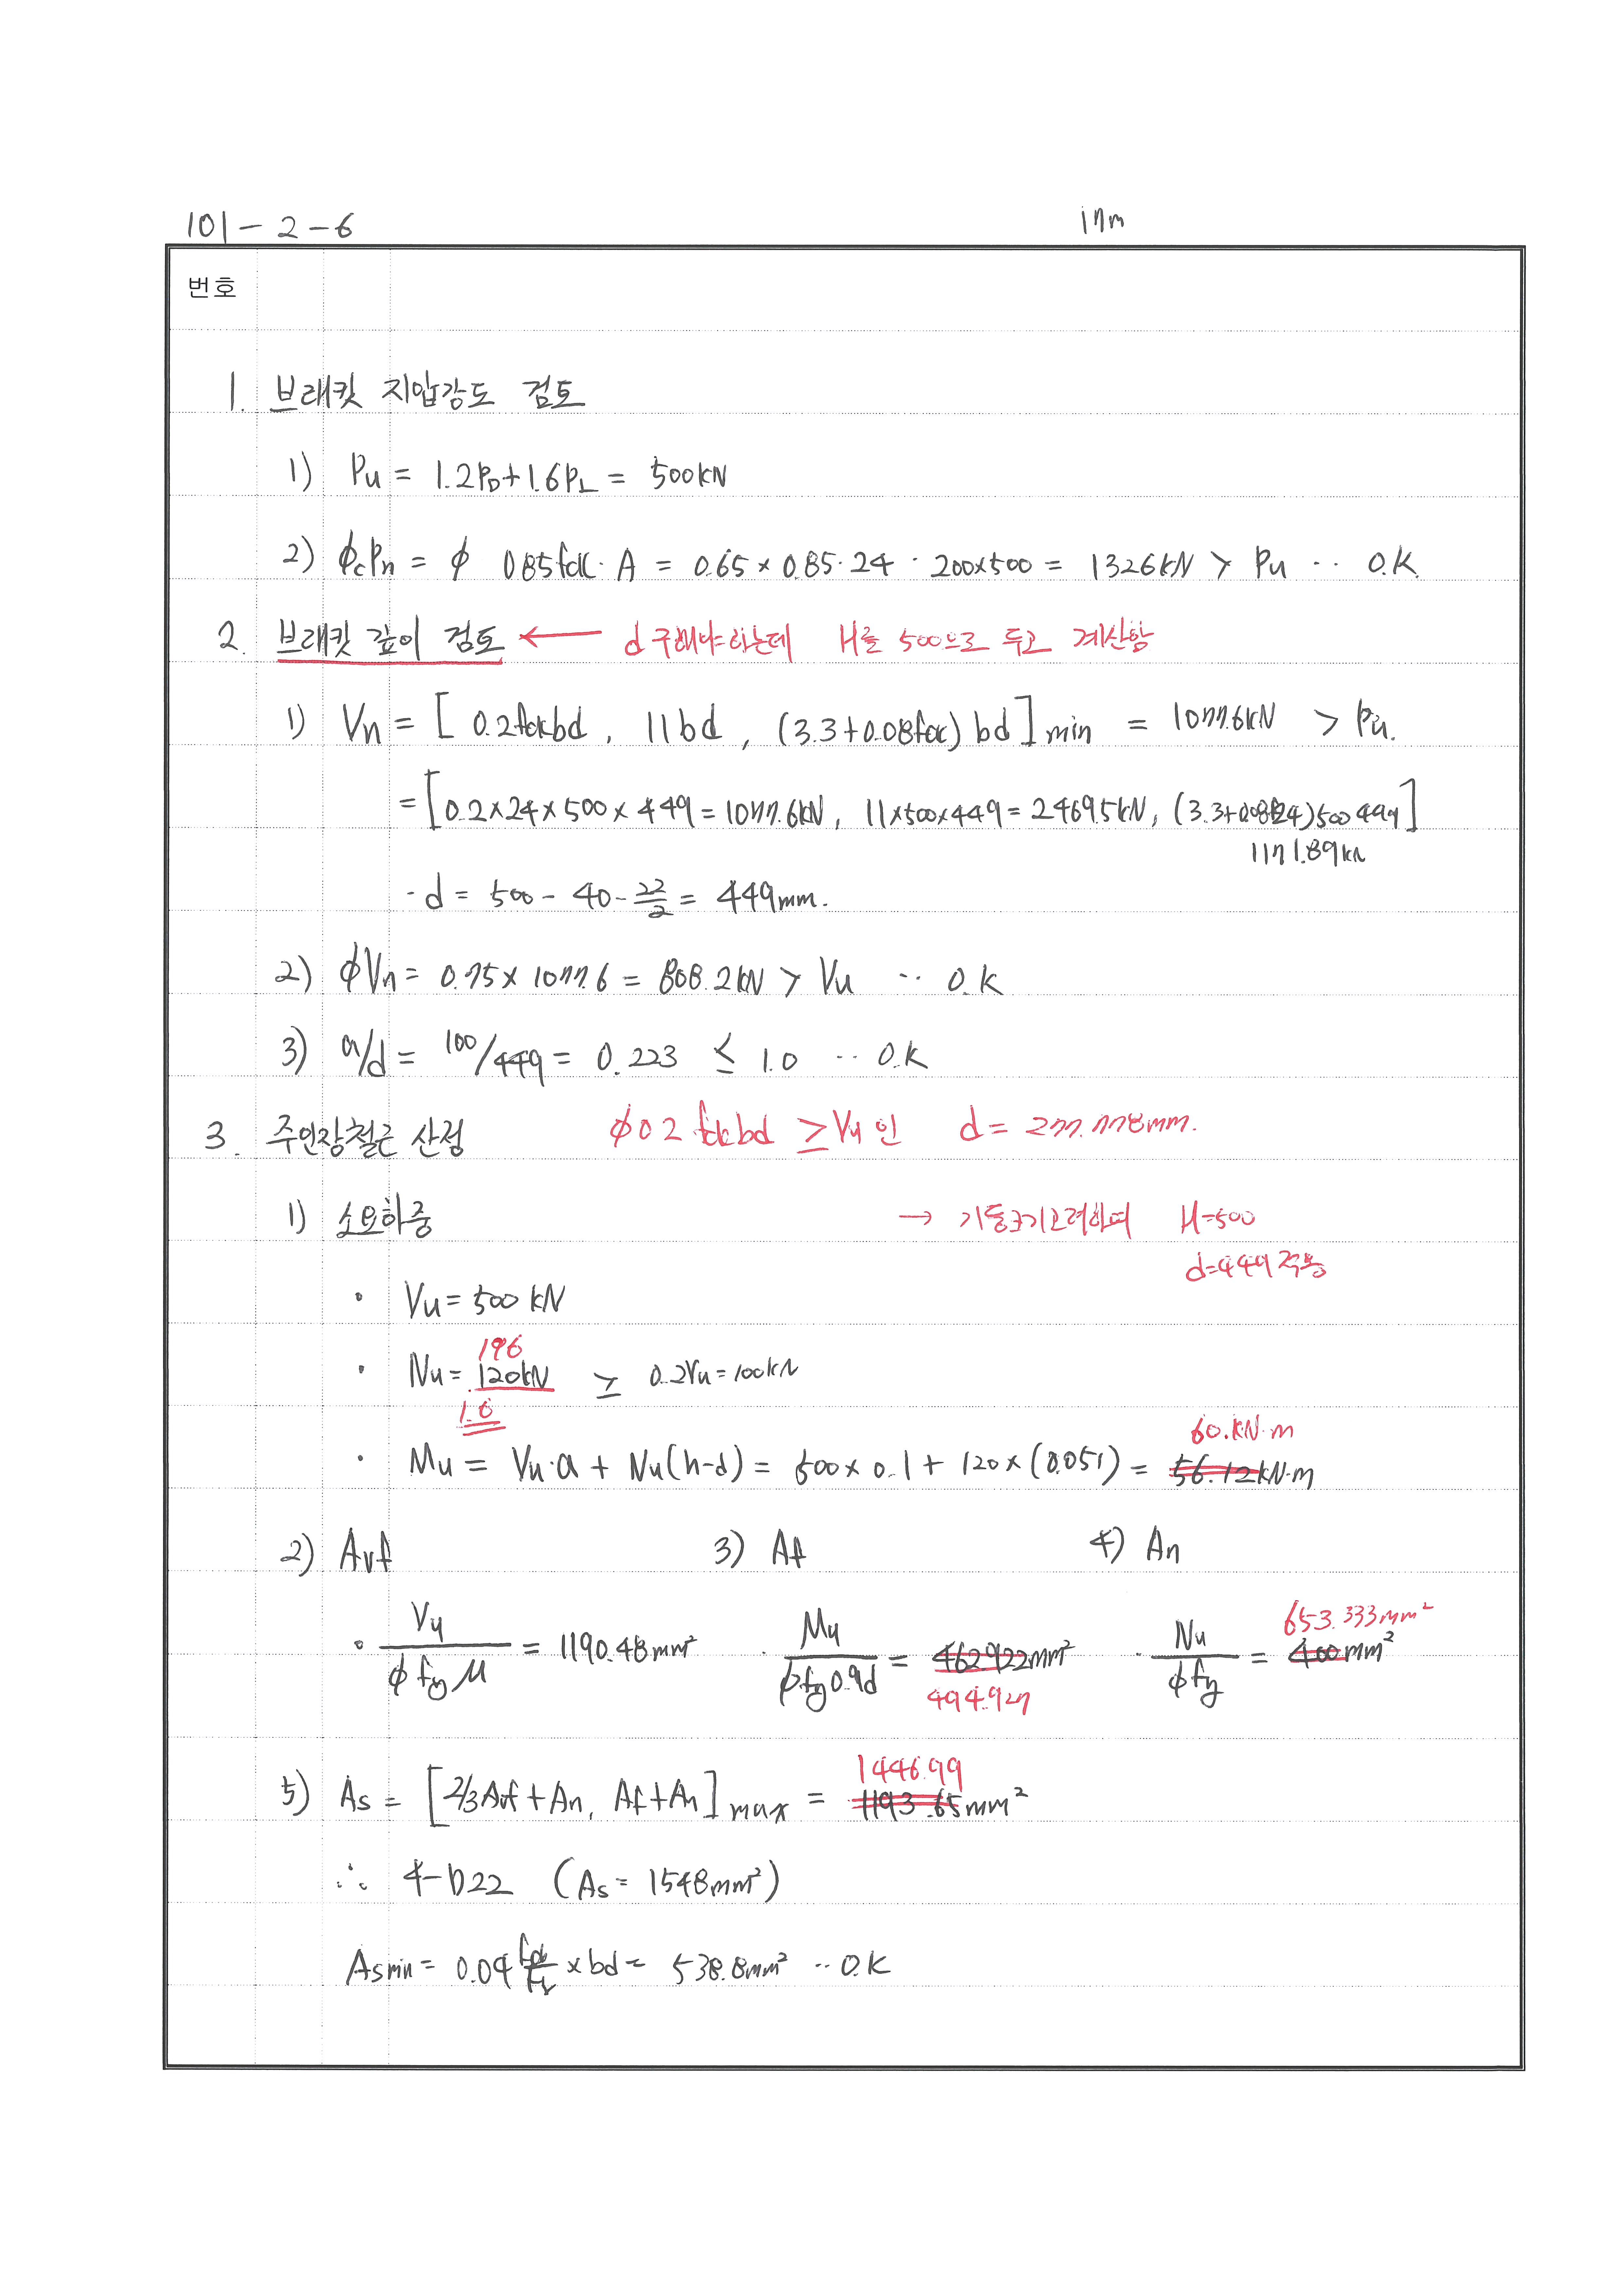 101-2-6 17m
번호
1. 브래킷 지압강도 검토
1) Pu = 1.2PD+1.6PL = 500kN
2) ϕcPn = ϕ 0.85fck·A = 0.65×0.85·24·200×500 = 1326kN > Pu ·· O.K
2. 브래킷 깊이 검토 ← d구해야하는데 H를 500으로 두고 계산함
1) Vn = [ 0.2fckbd, 11bd, (3.3+0.08fck) bd ]min = 1077.6kN > Pu.
= [0.2×24×500×449=1077.6kN, 11×500×449=2469.5kN, (3.3+0.08×24)500 449]
1171.89kN
· d = 500 - 40 - 22/2 = 449mm.
2) ϕVn = 0.75×1077.6 = 808.2kN > Vu ·· O.K
3) a/d = 100/449 = 0.223 ≤ 1.0 ·· O.K
3. 주인장철근 산정 ϕ0.2fckbd ≥ Vu 인 d = 277.778mm.
1) 소요하중 → 기둥크기고려하여 H=500
d=449 적용
· Vu = 500 kN
196
· Nu = 120kN ≥ 0.2Vu = 100kN
1.6
60.kN·m
· Mu = Vu·a + Nu(h-d) = 500×0.1 + 120×(0.051) = 56.12kN·m
2) Avf 3) Af 4) An
653.333mm²
· Vu/ϕfyμ = 1190.48mm² · Mu/ϕfy0.9d = 462.922mm² · Nu/ϕfy = 400mm²
494.927
1446.99
5) As = [2/3Avf+An, Af+An]max = 1193.65mm²
∴ 4-D22 (As = 1548mm²)
Asmin = 0.04 fck/fy × bd = 538.8mm² ·· O.K